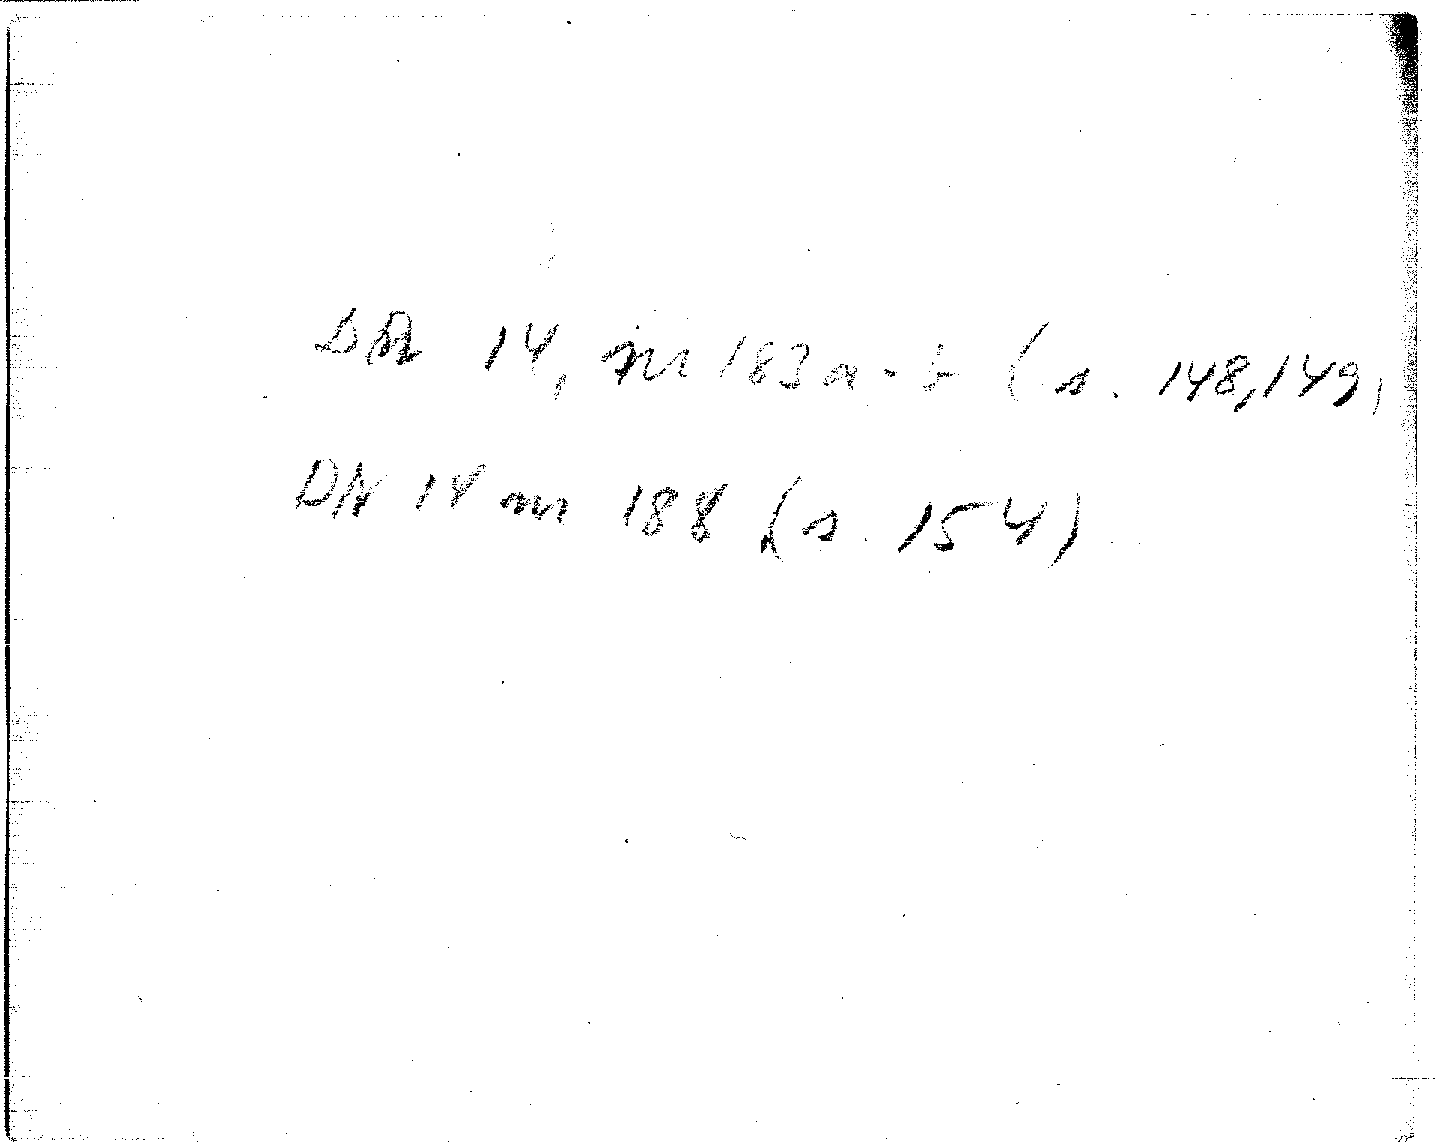 DR 14, nr 183 a-b (s. 148,149)
DR 14 nr 188 (s. 154)